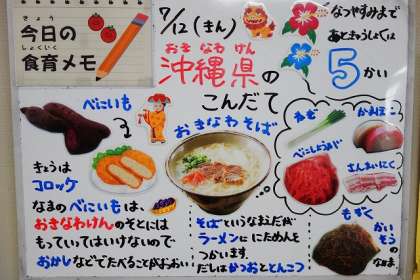 きょう
今日の
しょくいく
食育メモ
7/12(きん)
おきなわけん
沖縄県の
こんだて
なつやすみまで
あときゅうしょくは
5かい
べにいも
おきなわそば
ねぎ
かまぼこ
べにしょうが
さんまいにく
きょうは
コロッケ
なまのべにいもは、
おきなわけんのそとには
もっていてはいけないので
おかしなどでたべることがおおい
そばというなまえだが
ラーメンににためんを
つかいます。
だしはかつおととんこつ
もずく
かいそうの
なかま